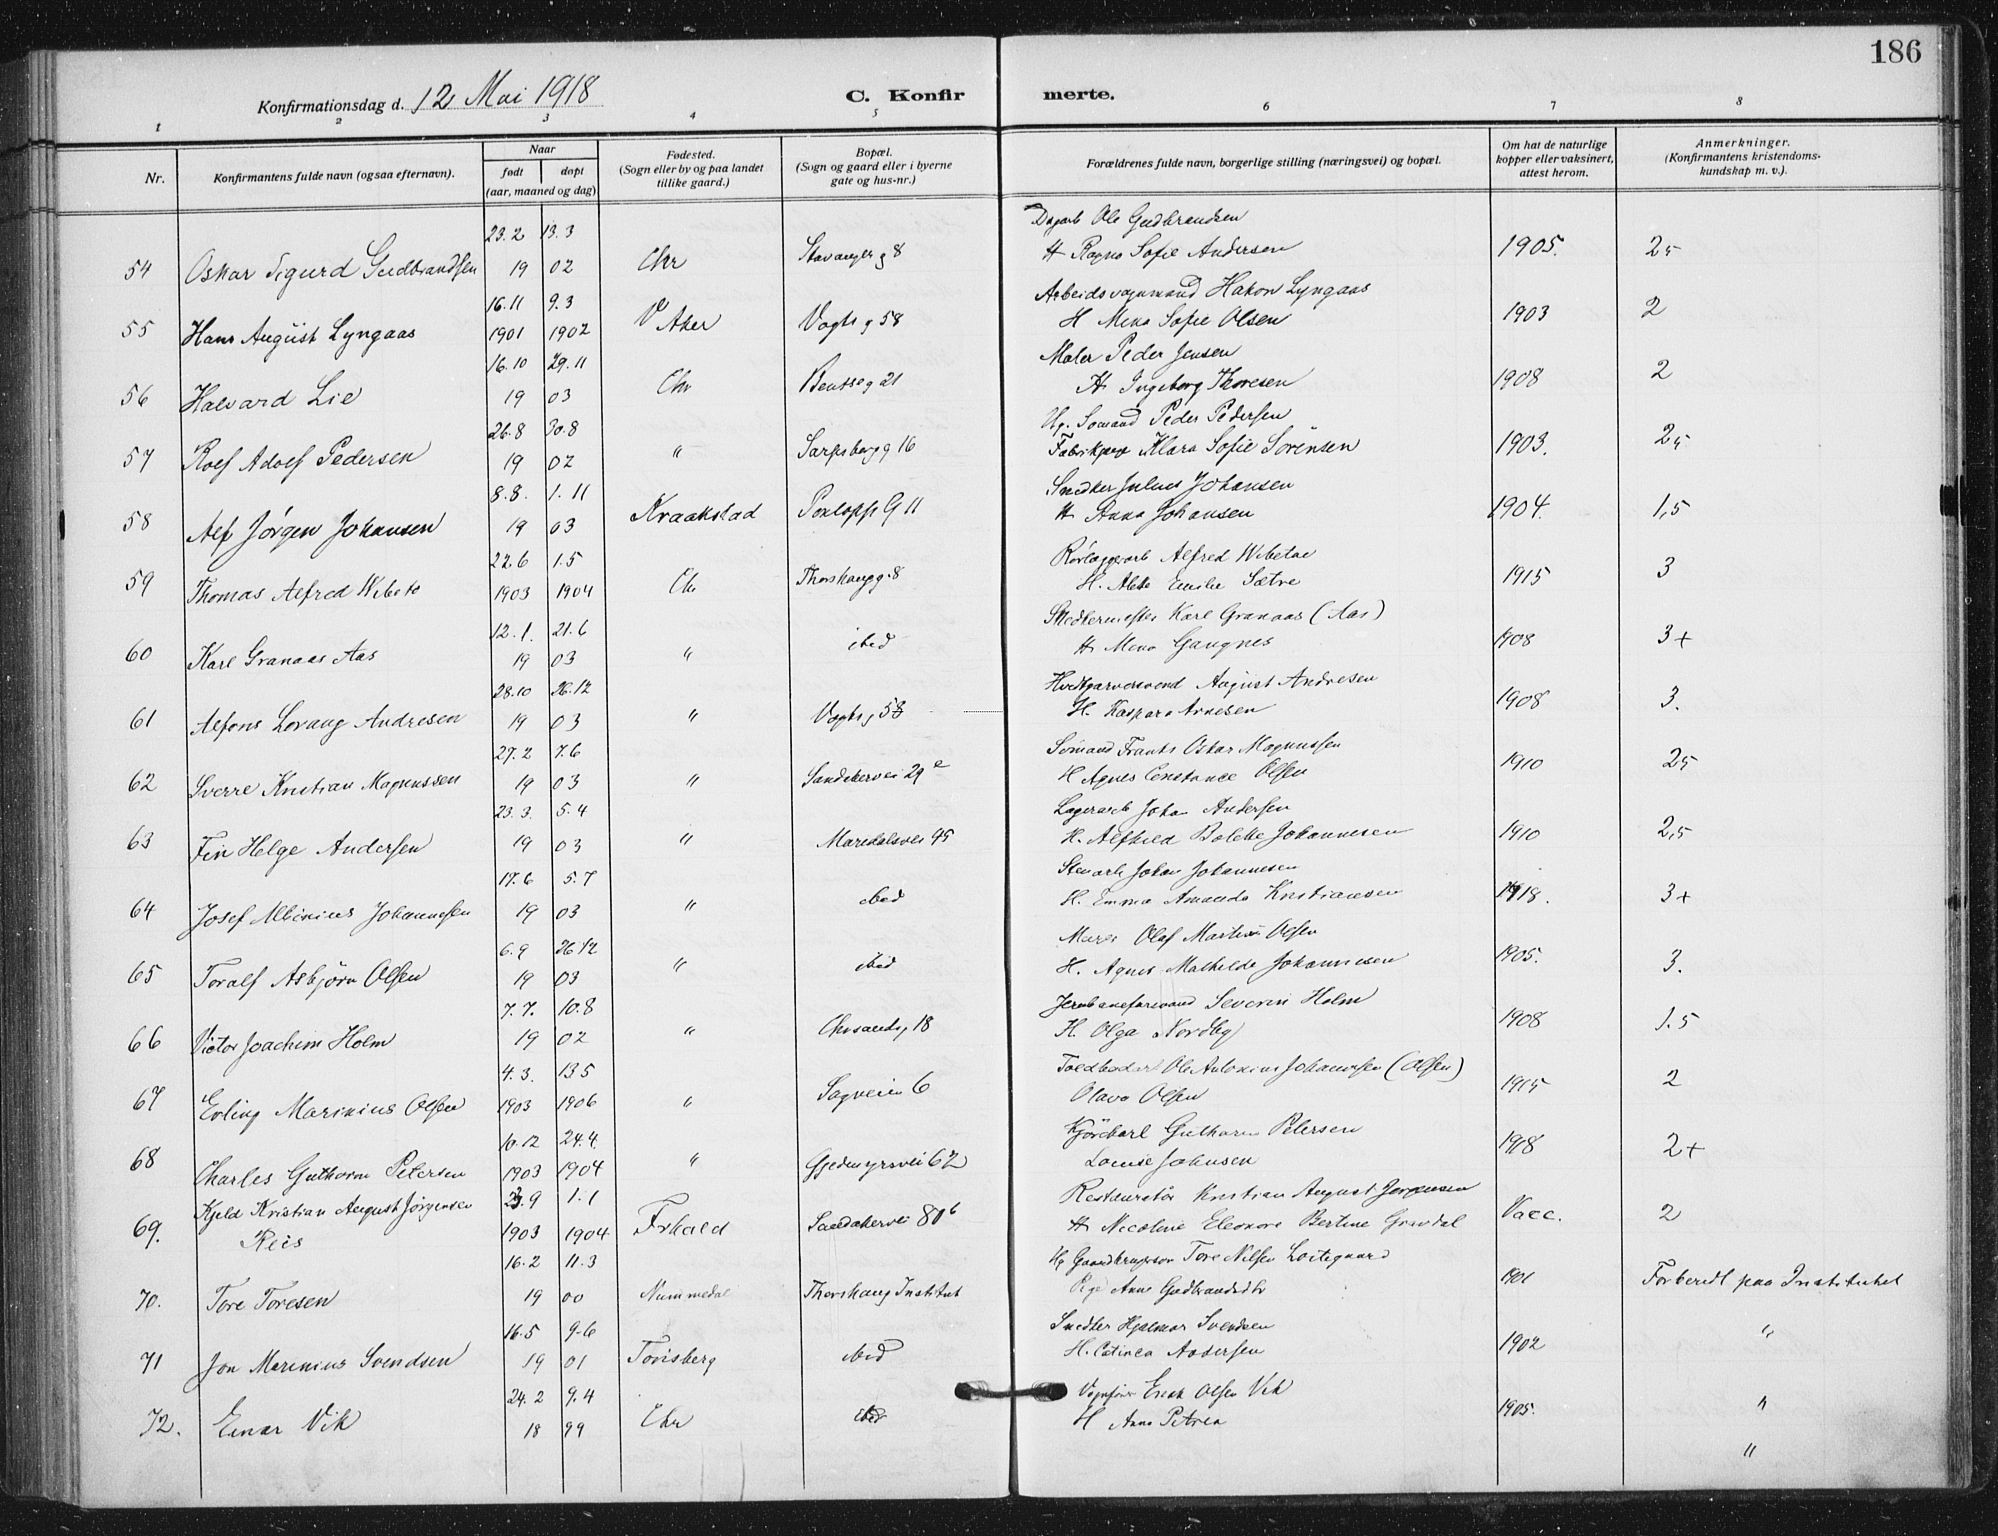 186
Konfirmationsdag d. 12 Mai 1918 C. Konfirmerte.
1 2 3 4 5 6 7 8
Nr.
Konfirmantens fulde navn (ogsaa efternavn).
Naar
født døpt
(aar, maaned og dag)
Fødested.
(Sogn eller by og paa landet
tillike gaard.)
Bopæl.
(Sogn og gaard eller i byerne
gate og hus-nr.)
Forældrenes fulde navn, borgerlige stilling (næringsvei) og bopæl.
Om hat de naturlige
kopper eller vaksinert,
attest herom.
Anmerkninger.
(Konfirmantens kristendoms-
kundskap m. v.).
23.2 13.3 Dagarb Ole Gudbrandsen
54 Oskar Sigurd Gudbrandsen 19 02 Chr Stavangerg 8 H Ragna Sofie Andersen 1905. 25
16.11 9.3 Arbeidsvognmand Hakon Lyngaas
55 Hans August Lyngaas 1901 1902 V Aker Vogtsg 58 H Mina Sofie Olsen 1903 2
16.10 29.11 Maler Peder Jensen
56 Halvard Lie 19 03 Chr Bentseg 21 H Ingeborg Thoresen 1908 2
26.8 30.8 Ug. Sømand Peder Pedersen
57 Rolf Adolf Pedersen 19 02 " Sarpsborgg 16 Fabrikpige Klara Sofie Sørensen 1903. 25
8.8. 1.11 Snedker Julius Johansen
58 Alf Jørgen Johansen 19 03 Kraakstad G 11 H Anna Johansen 1904. 1,5
22.6 1.5 Rørlæggerarb Alfred Wibetoe
59 Thomas Alfred Wibeto 1903 1904 Chr Thorshaugg. 8 H. Emilie Sætre 1915 3
12.1. 21.6 Snedkermester Karl Granaas (Aas)
60 Karl Granaas Aas 19 03 " ibid H Mina Gangnes 1908 3+
28.10 26.12 Hvidtgarversvend August Andresen
61 Alfons Lorang Andresen 19 03 " Vogtsg 58 H. Kaspara Arnesen 1908 3.
27.2 7.6 Sømand Frants Oskar Magnussen
62 Sverre Kristian Magnussen 19 03 " Sandakervei 29 e H Agnes Constance Olsen 1910 25
23.3. 5.4 Lagerarb Johan Andersen
63 Fin Helge Andersen 19 03 " Maridalsvei 95 H. Alfhild Bolette Johannesen 1910 2,5
17.6 5.7 Stenarb Johan Johannesen
64 Josef Albinius Johannesen 19 03 " ibid H. Emma Amanda Kristiansen 1918. 3+
6.9 26.12 Murer Olaf Martin Olsen
65 Toralf Asbjørn Olsen 19 03 " ibid H. Agnes Mathilde Johannesen 1905. 3.
7.7. 10.8 Jernbaneformand Severin Holm
66 Victor Joachim Holm 19 02 " Chrsandsg 18 H. Olga Nordby 1908 1.5
4.3. 13.5 Toldbodarb Ole Antonius Johannesen (Olsen)
67 Erling Marinius Olsen 1903 1906 " Sagveien 6 Olava Olsen 1915 2
10.12 24.4. Kjørekarl Guthorm Petersen
68 Charles Guthorm Petersen 1903 1904 " Gjedemyrsvei 62 Louise Johnsen 1918 2+
Kjeld Kristian August Jørgensen 23.9 1.1 Restauratør Kristian August Jørgensen
69. Reis 1903 1904 Frhald Sandakervei 80 b H Nicoline Eleonore Bertine Gravdal Vacc. 2
16.2 11.3 Ug Gaardbrugersøn Tore Nilsen Loitegaard
70. Tore Toresen 19 00 Nummedal Thorshaug Institut Pige Anne Gudbrandsdtr 1901 Forberedt paa Institutet
16.5 9.6 Snedker Hjalmar Svendsen
71 Jon Marinius Svendsen 19 01 Tønsberg ibid H. Catinca Andersen 1902 "
24.2 9.4 Vognfører Erik Olsen Vik
72. Einar Vik 18 99 Chr ibid H Anne Petrea 1905. "
"